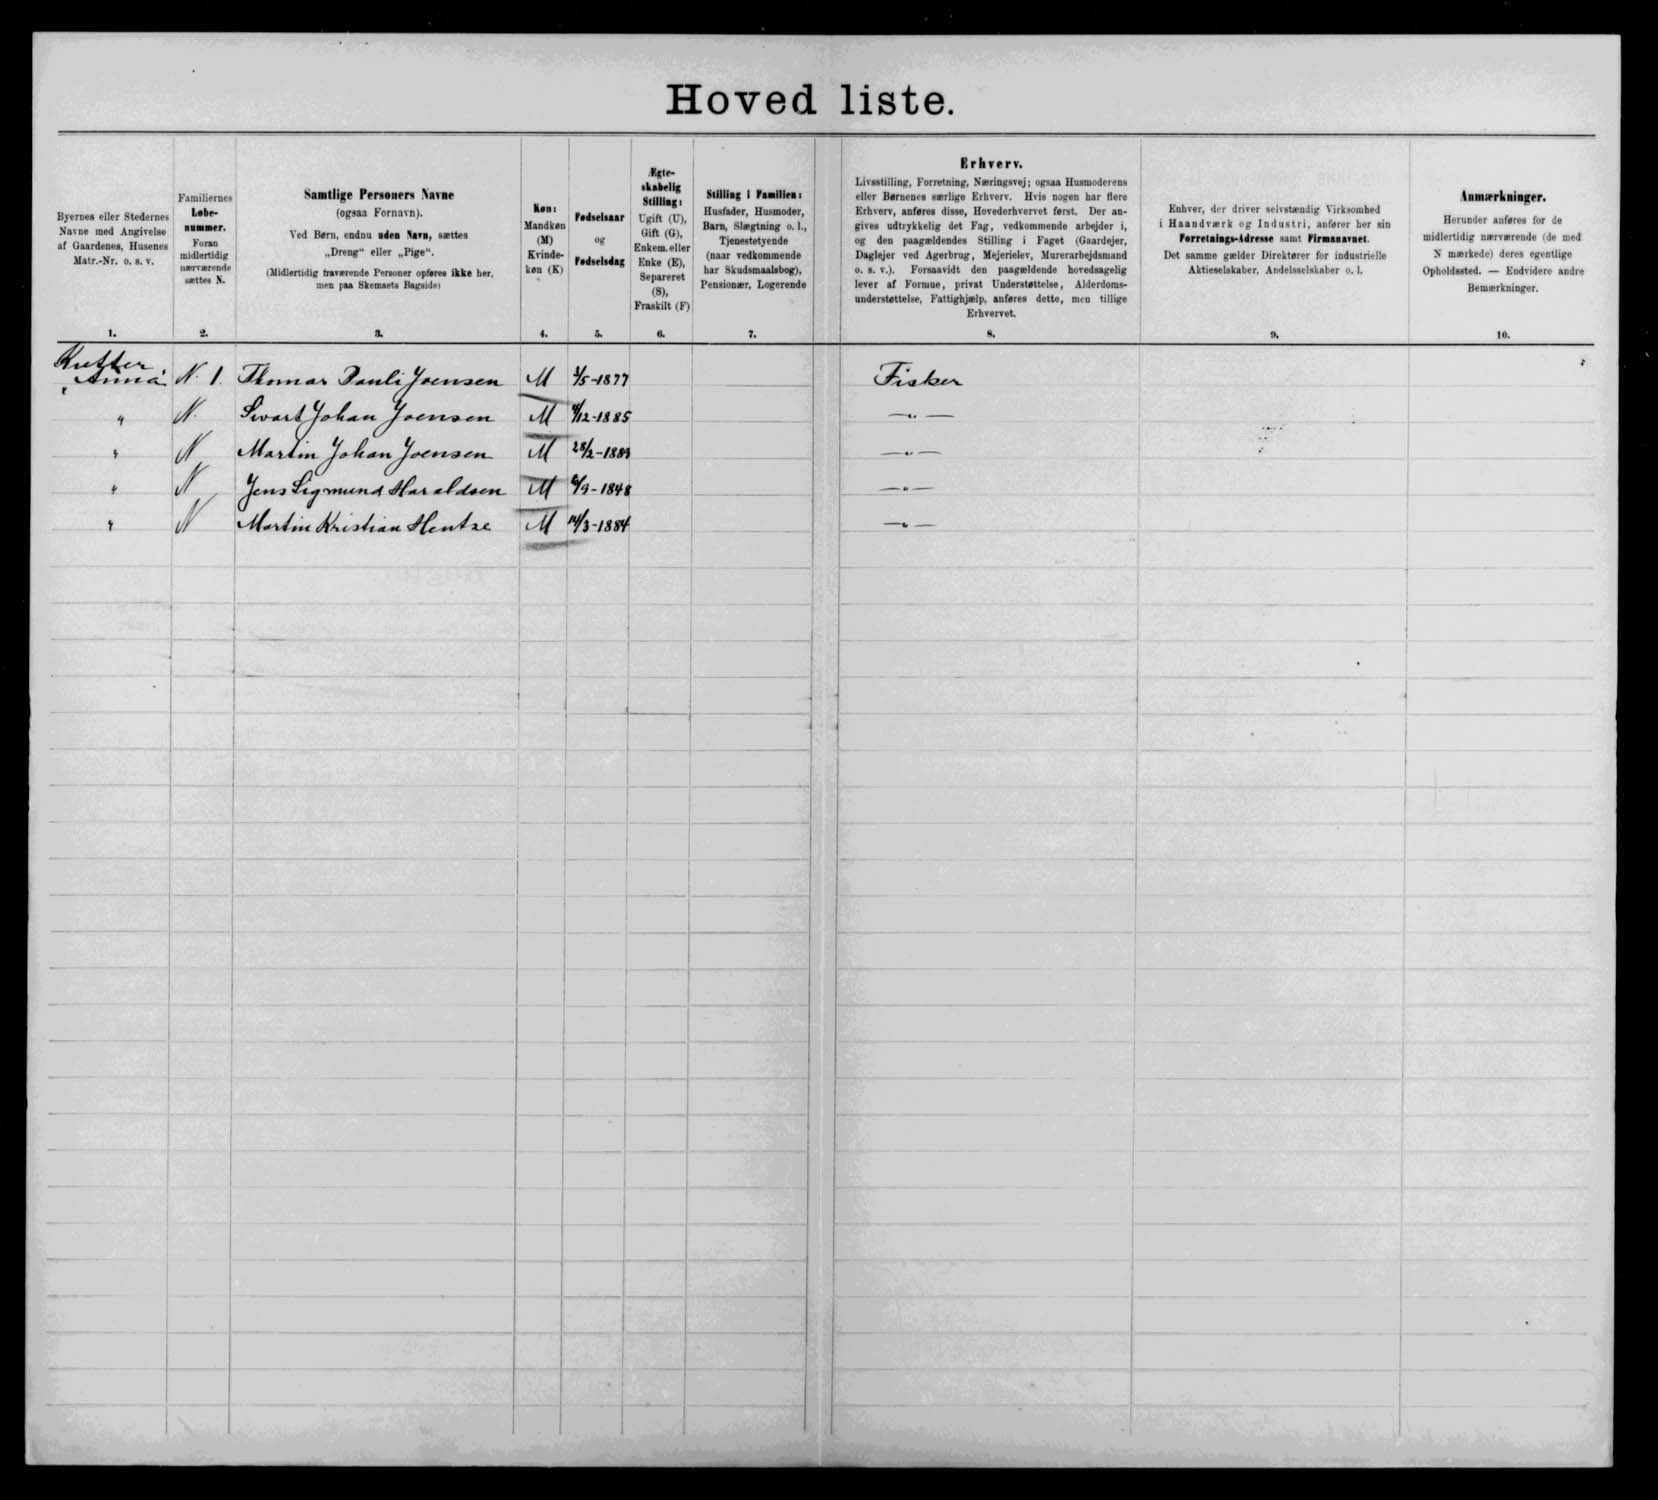 Hoved liste.
Byernes eller Stedernes
Navne med Angivelse
af Gaardenes, Husenes
Matr.-Nr. o. s. v.
1.
Familiernes
Løbe-
nummer.
Foran
midlertidig
nærværende
sættes N.
2.
Samtlige Personers Navne
(ogsaa Fornavn).
Ved Børn, endnu uden Navn, sættes
„Dreng“ eller „Pige“.
(Midlertidig fraværende Personer opføres ikke her,
men paa Skemaets Bagside)
3.
Køn:
Mandkøn
(M)
Kvinde-
køn (K)
4.
Fødselsaar
og
Fødselsdag
5.
Ægte-
skabelig
Stilling:
Ugift (U),
Gift (G),
Enkem. eller
Enke (E),
Separeret
(S),
Fraskilt (F)
6.
Stilling i Familien:
Husfader, Husmoder,
Barn, Slægtning o. l.,
Tjenestetyende
(naar vedkommende
har Skudsmaalsbog),
Pensionær, Logerende
7.
Erhverv.
Livsstilling, Forretning, Næringsvej; ogsaa Husmoderens
eller Børnenes særlige Erhverv. Hvis nogen har flere
Erhverv, anføres disse, Hovederhvervet først. Der an-
gives udtrykkelig det Fag, vedkommende arbejder i,
og den paagældendes Stilling i Faget (Gaardejer,
Daglejer ved Agerbrug, Mejerielev, Murerarbejdsmand
o. s. v.). Forsaavidt den paagældende hovedsagelig
lever af Formue, privat Understøttelse, Alderdoms-
understøttelse, Fattighjælp, anføres dette, men tillige
Erhvervet.
8.
Enhver, der driver selvstændig Virksomhed
i Haandværk og Industri, anfører her sin
Forretnings-Adresse samt Firmanavnet.
Det samme gælder Direktører for industrielle
Aktieselskaber, Andelsselskaber o. l.
9.
Anmærkninger.
Herunder anføres for de
midlertidig nærværende (de med
N mærkede) deres egentlige
Opholdssted. — Endvidere andre
Bemærkninger.
10.
Kutter
Anna N. 1. Thomas Pauli Joensen M /5-1877 Fisker
" N. Sivart Johan Joensen M /12-1885 —"—
" N Martin Johan Joensen M 28/2-18 —"—
" N Jens Sigmund Haraldsen M /9-1848 —"—
" N Martin Kristian Hentze M 14/3-1884 —"—